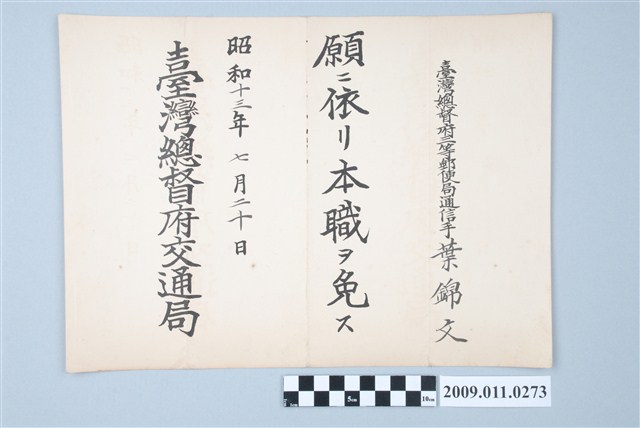 臺灣總督府三等郵便局通信手葉錦文
願ニ依リ本職ヲ免ス
昭和十三年七月二十日
臺灣總督府交通局
5cm
10cm
2009.011.0273